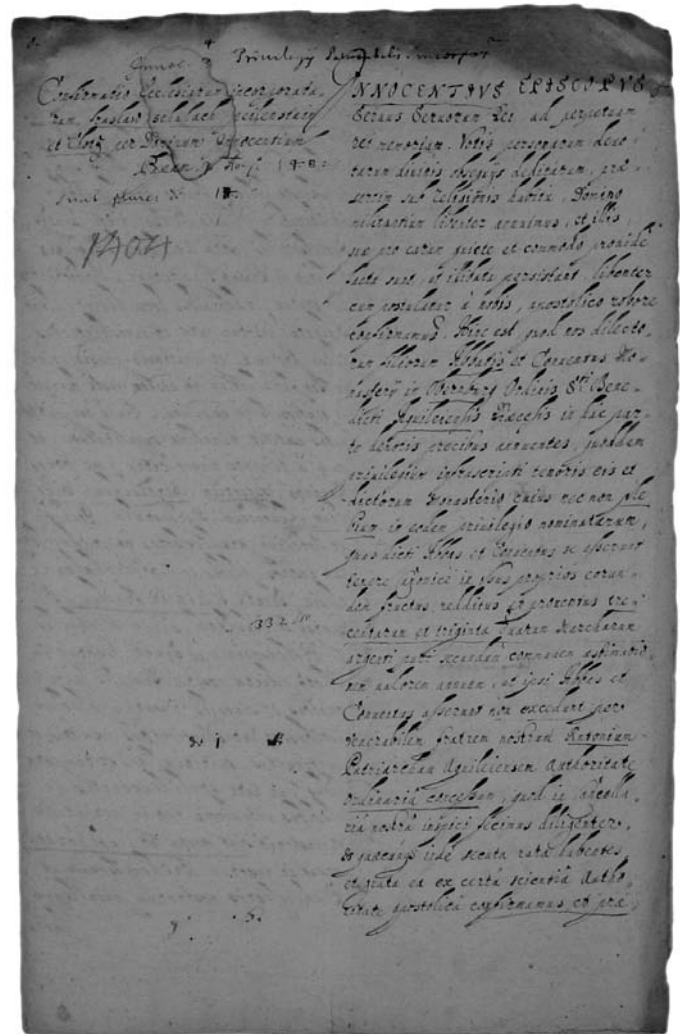 Confirmatio Ecclesiarum incorporata-
rum, fraslau schalach
et per Dominum Innocentium
1404
332 m
INNOCENTIVS EPISCOPVS
Seruus Seruorum Dei ad perpetuam
rei memoriam. Votis personarum deuo-
tarum diuinis obsequijs deditarum, præ-
sertim sub religionis habitu, Domino
militantium libenter annuimus, et illis,
quæ pro earum quiete et commodo prouide
facta sunt, ut illibata persistant, libenter
cum postulatur à nobis, apostolico robore
confirmamus. Hinc est, quod nos dilecto-
rum filiorum Abbatis et Conuentus Mo-
nasterij in Obernburg Ordinis Sti Bene-
dicti Aquileiensis Diœcesis in hac par-
te deuotis precibus annuentes, quoddam
priuilegium infrascripti tenoris eis et
dictorum Monasterio cuius nec non ple-
bium in eodem priuilegio nominatarum,
quas dicti Abbas et Conuentus se asserunt
tenere canonicè in vsus proprios eorun-
dem fructus redditus et prouentus tre-
centarum et triginta duarum Marcharum
argenti puri secundum communem æstimatio-
nem valorem annuum, ut ipsi Abbas et
Conuentus asserunt non excedunt per
Venerabilem fratrem nostrum Antonium
Patriarcham Aquileiensem Authoritate
ordinariâ concessum, quod in Cancella-
riâ nostrâ inspici fecimus diligenter,
et quæcunque inde secuta rata habentes
et grata ea ex certâ scientiâ Autho-
ritate apostolicâ confirmamus, et præ-